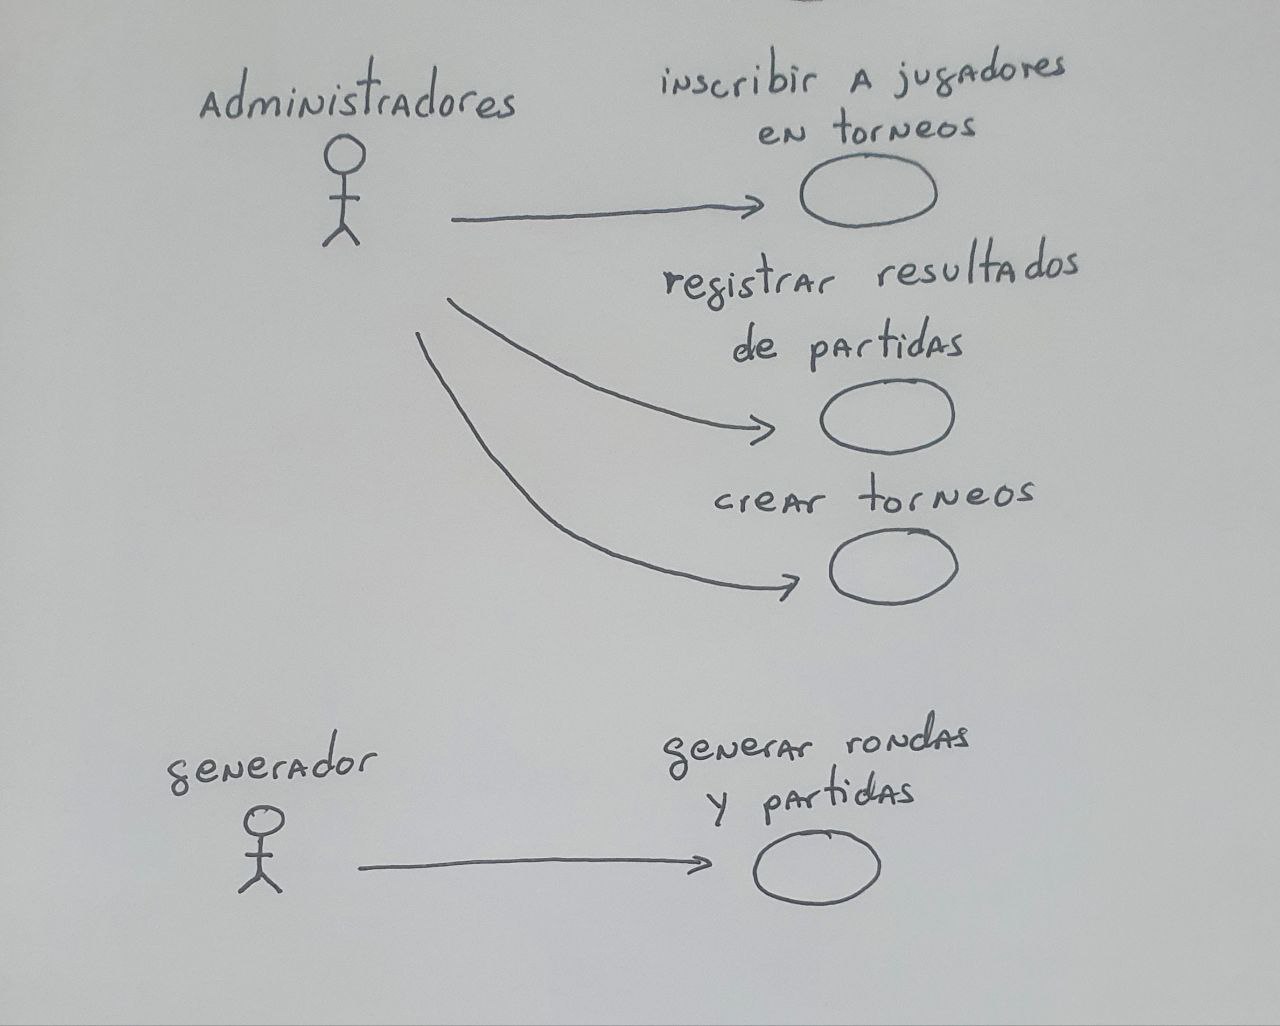 Administradores
inscribir A jugadores
en torneos
registrar resultados
de partidas
crear torneos
generador
generar rondas
y partidas